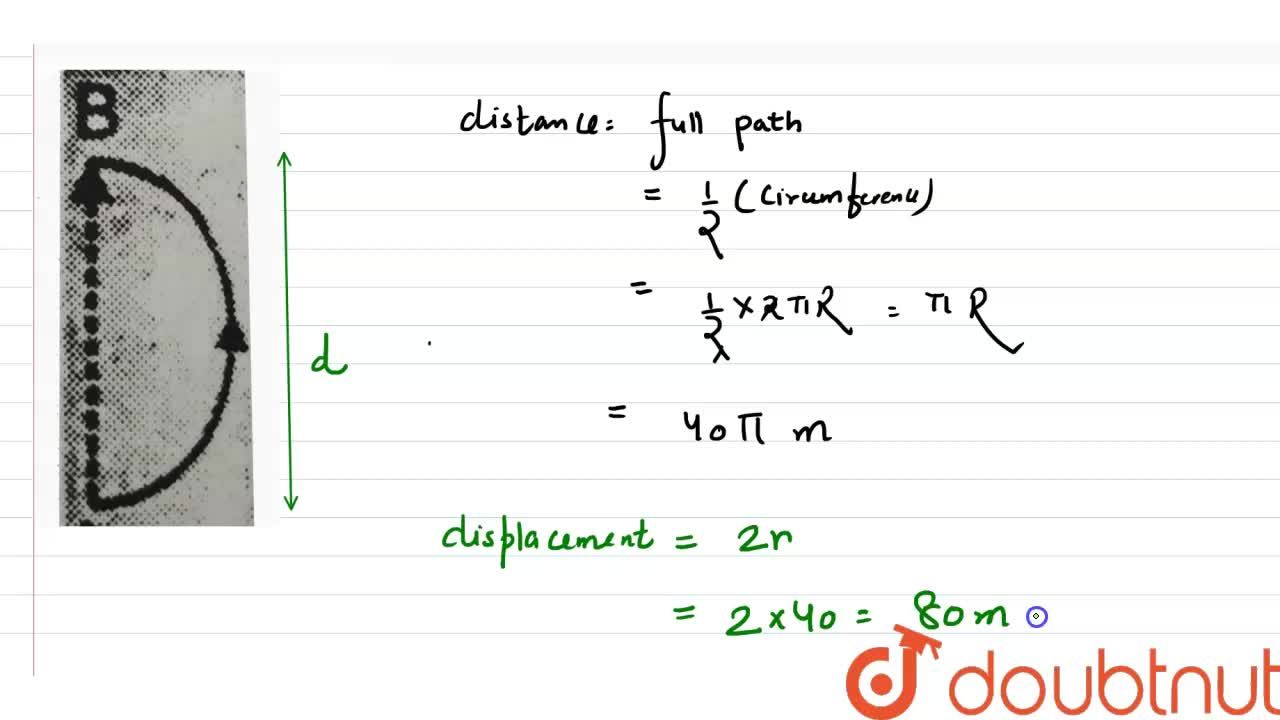 B
distance: full path
= 1/2 (circumference)
= 1/2 × 2πR = πR
= 40π m
d
displacement = 2r
= 2×40 = 80m
doubtnut